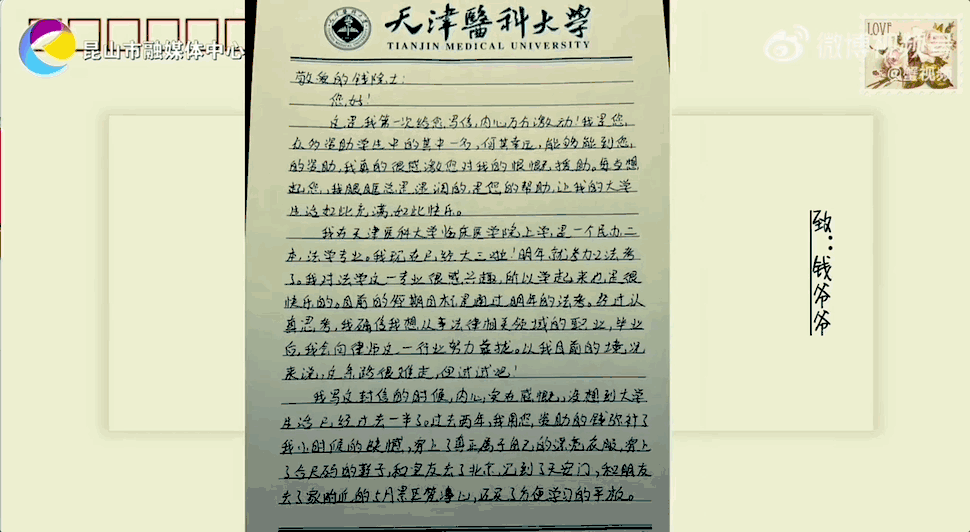 昆山市融媒体中心
微博视频号
LOVE
@蟹视频
天津醫科大学
TIANJIN MEDICAL UNIVERSITY
敬爱的钱院士:
您好!
这是我第一次给您写信,内心万分激动!我是您
众多资助学生中的其中一名,何其幸运,能够能到您
的资助,我真的很感激您对我的慷慨援助。每当想
起您,我眼眶总是湿润的,是您的帮助,让我的大学
生活如此充满,如此快乐。
我在天津医科大学临床医学院上学,是一个民办二
本,法学专业。我现在已经大三啦!明年就努力法考
了。我对法学这一专业很感兴趣,所以学起来也是很
快乐的。目前的短期目标是通过明年的法考。经过认
真思考,我确信我想从事法律相关领域的职业,毕业
后,我会向律师这一行业努力靠拢。以我目前的境况
来说,这条路很难走,但试试吧!
我写这封信的时候,内心实在感慨,没想到大学
生活已经过去一半了。过去两年,我用您资助的钱弥补了
我小时候的缺憾,穿上了真正属于自己的漂亮衣服,穿上
了合尺码的鞋子,和室友去了北京,见到了天安门,和朋友
去了家附近的5A景区梵净山,还买了方便学习的平板。
致:钱爷爷